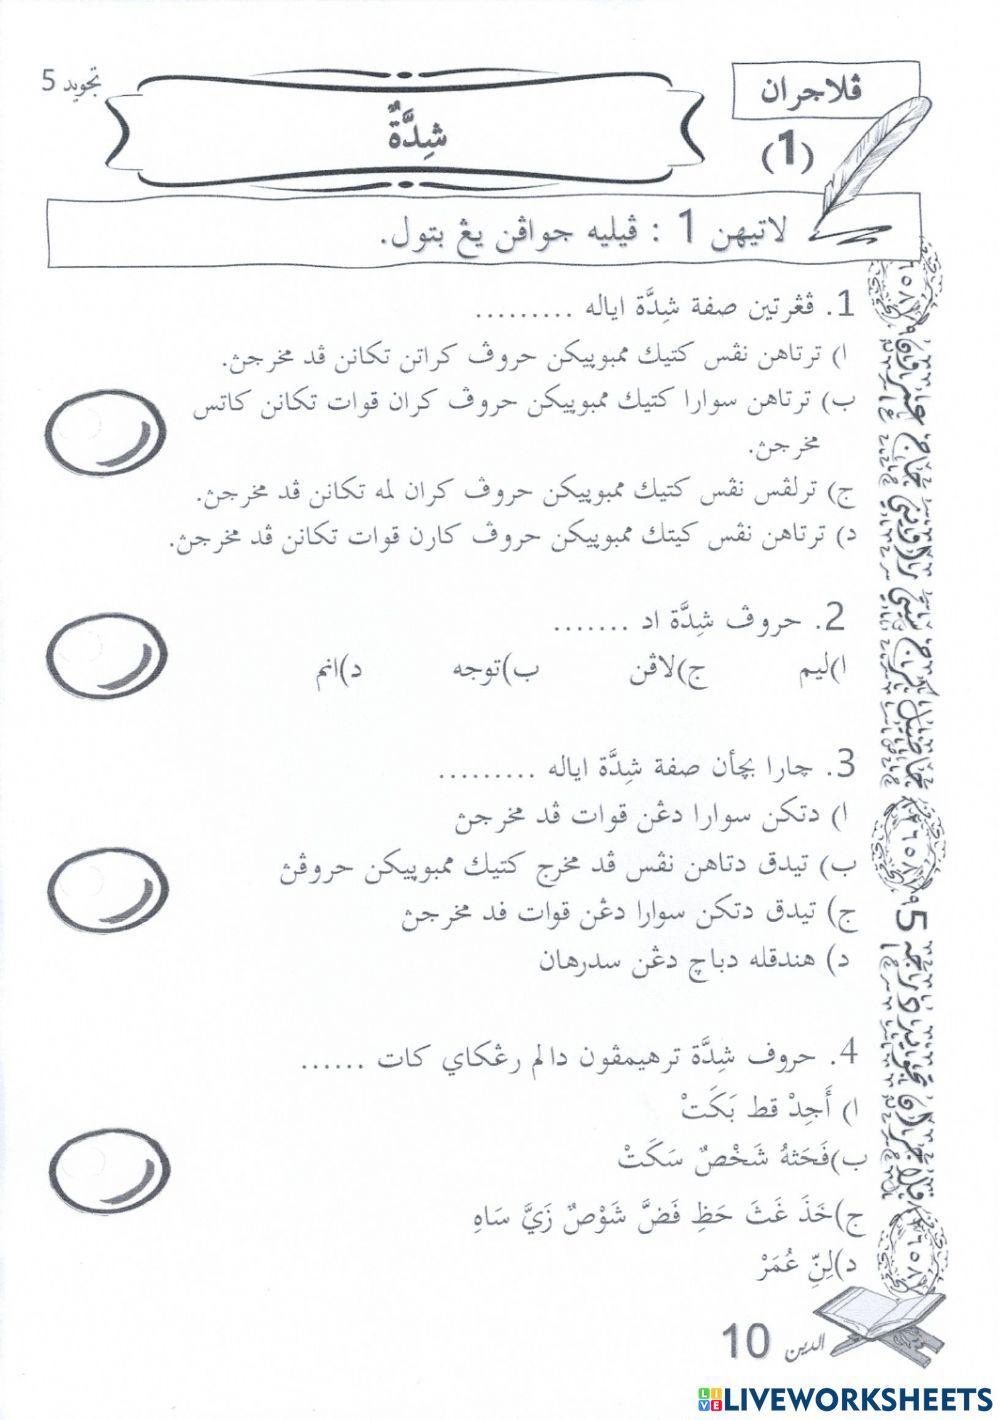 تجويد 5
ڤلاجرن
(1)
شِدَّةٌ
لاتيهن 1 : ڤيليه جواڤن يڠ بتول.
1. ڤڠرتين صفة شِدَّة اياله .........
ا) ترتاهن نڤس كتيك ممبوڽيكن حروف كراتن تكانن ڤد مخرجڽ.
ب) ترتاهن سوارا كتيك ممبوڽيكن حروف كران قوات تكانن كاتس
مخرجڽ.
ج) ترلڤس نڤس كتيك ممبوڽيكن حروف كران لمه تكانن ڤد مخرجڽ.
د) ترتاهن نڤس كيتك ممبوڽيكن حروف كارن قوات تكانن ڤد مخرجڽ.
2. حروف شِدَّة اد .......
ا)ليم ج)لاڤن ب)توجه د)انم
3. چارا بچأن صفة شِدَّة اياله .........
ا) دتكن سوارا دڠن قوات ڤد مخرجڽ
ب) تيدق دتاهن نڤس ڤد مخرج كتيك ممبوڽيكن حروفڽ
ج) تيدق دتكن سوارا دڠن قوات فد مخرجڽ
د) هندقله دباچ دڠن سدرهان
4. حروف شِدَّة ترهيمڤون دالم رڠكاي كات ......
ا) أَجِدْ قط بَكَتْ
ب)فَحَثهُ شَخْصٌ سَكَتْ
ج)خَذَ غَثَ حَظِ فَضَّ شَوْصٌ زَيَّ سَاهِ
د)لِنِّ عُمَرْ
الدين 10
LIVEWORKSHEETS